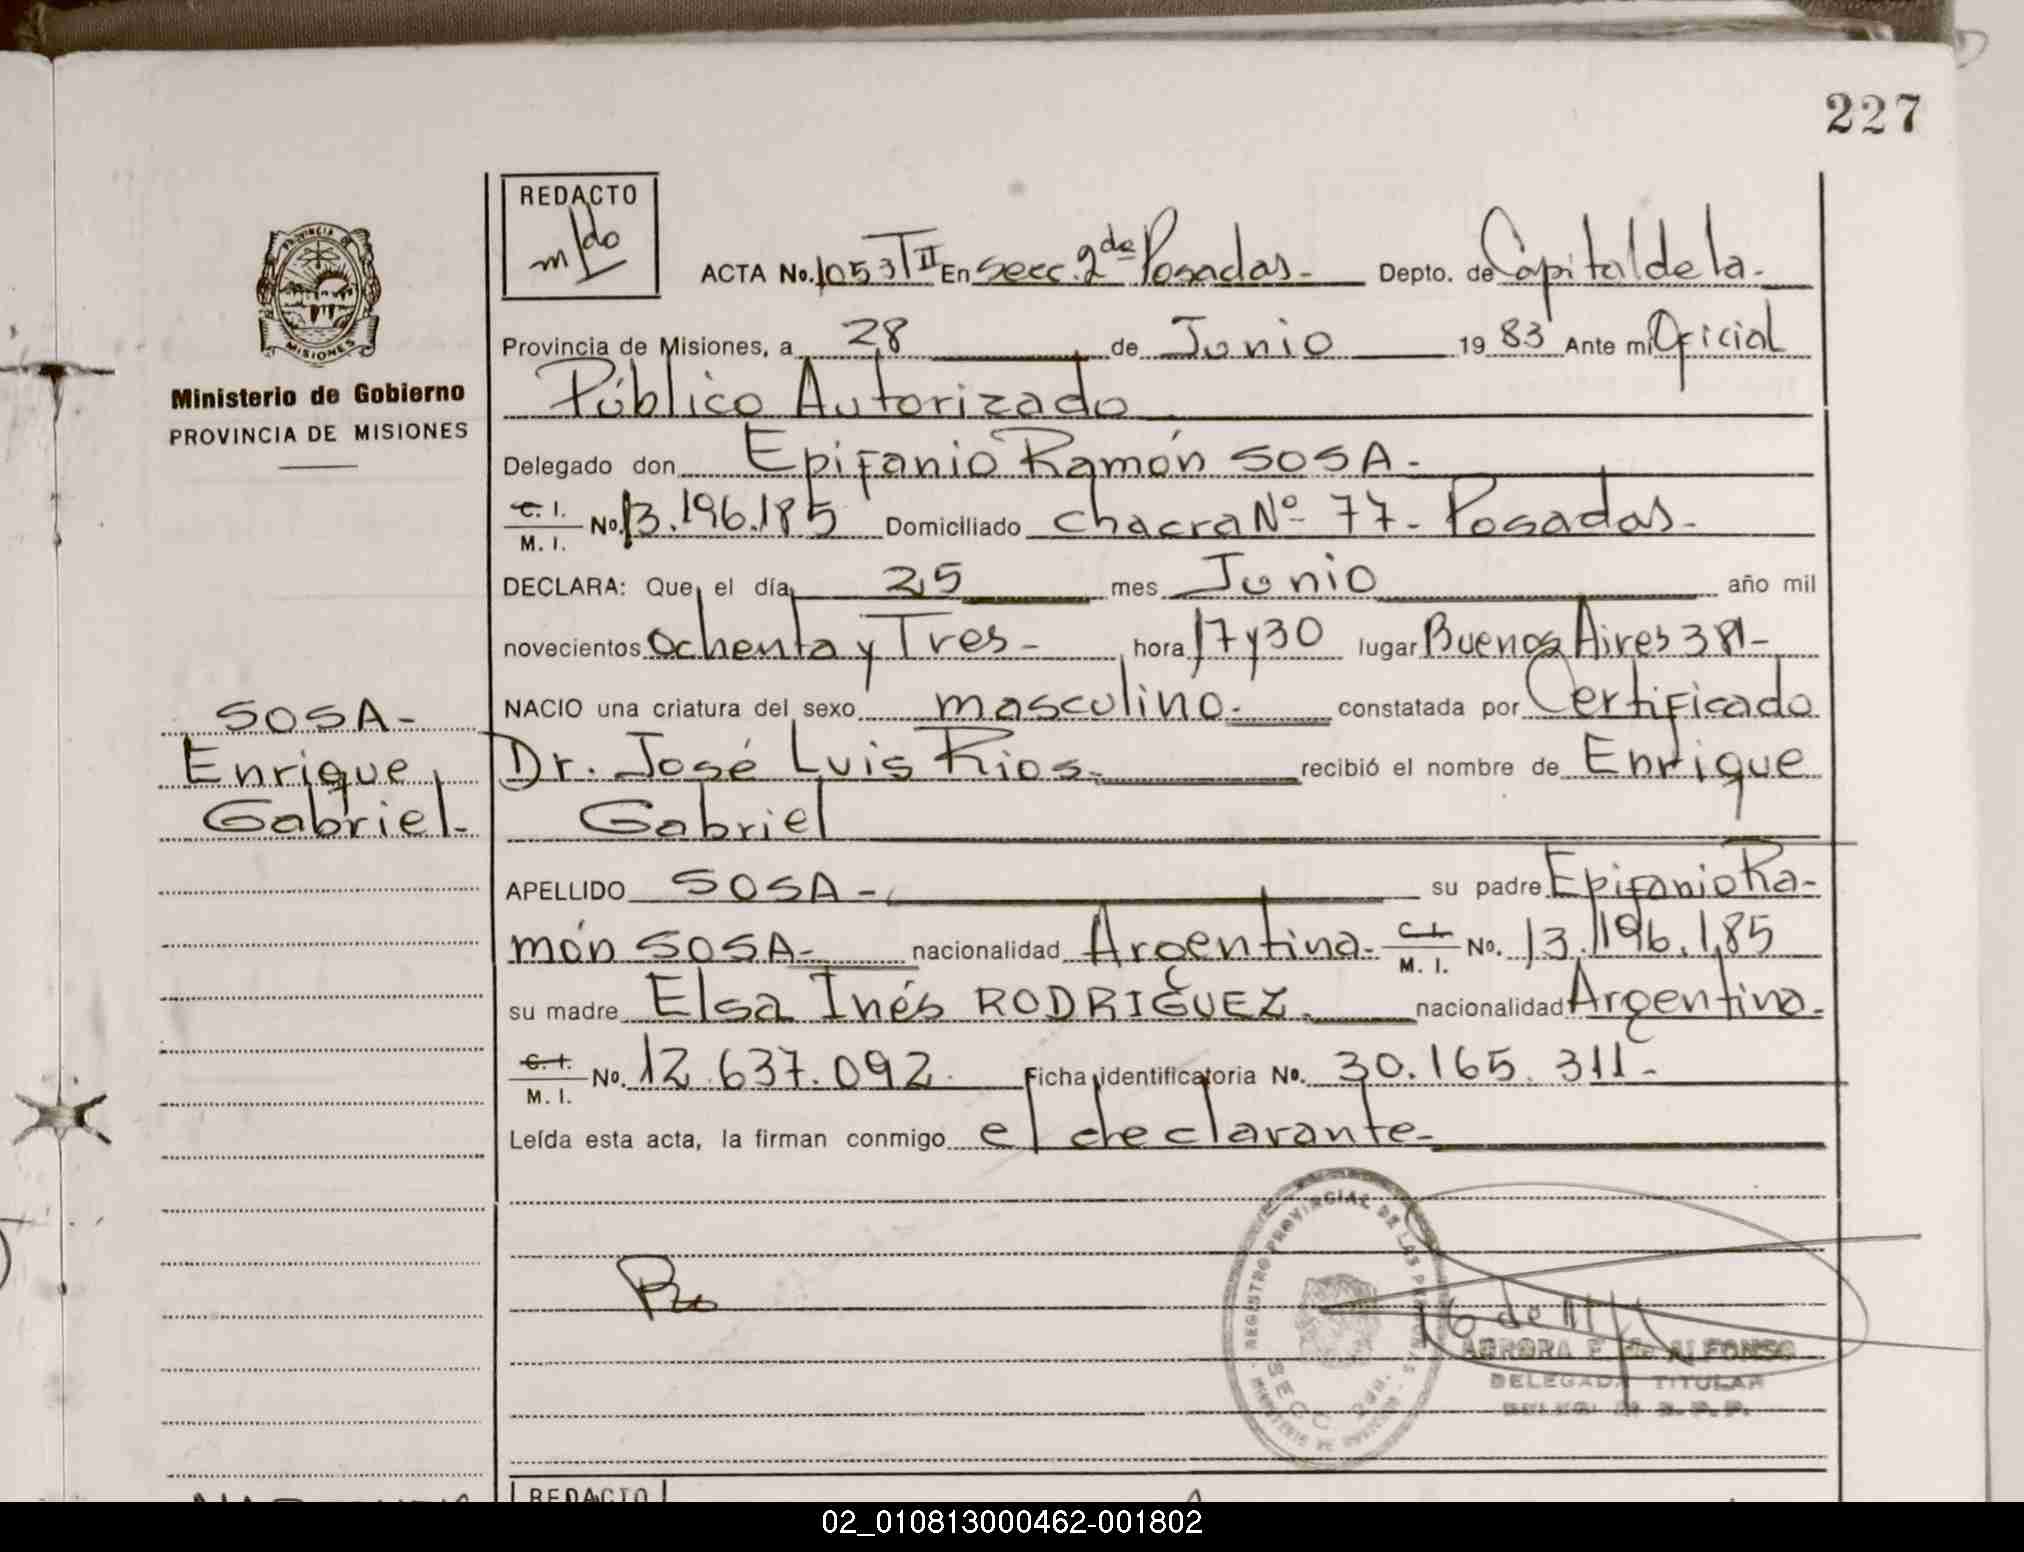 227
REDACTO
ACTA No. 1053 T II En Secc. 2da Posadas- Depto. de Capital de la-
Provincia de Misiones, a 28 de Junio 1983 Ante mi Oficial
Público Autorizado
Delegado don Epifanio Ramón SOSA-
C. I.
M. I. No. 13.196.185 Domiciliado Chacra Nº 77- Posadas-
DECLARA: Que el día 25 mes Junio año mil
novecientos Ochenta y Tres- hora 17 y 30 lugar Buenos Aires 381-
NACIO una criatura del sexo masculino- constatada por Certificado
Dr. José Luis Rios- recibió el nombre de Enrique
Gabriel
APELLIDO SOSA- su padre Epifanio Ra-
món SOSA- nacionalidad Argentina- C. I.
M. I. No. 13.196.185
su madre Elsa Inés RODRIGUEZ. nacionalidad Argentina-
C. I.
M. I. No. 12.637.092. Ficha identificatoria No. 30.165.311-
Leída esta acta, la firman conmigo el declarante-
PROVINCIA DE
MISIONES
Ministerio de Gobierno
PROVINCIA DE MISIONES
SOSA-
Enrique
Gabriel-
REGISTRO PROVINCIAL DE LAS PERSONAS
SECC. 2da.
DE ALFONSO
DELEGADA TITULAR
REDACTO
02_010813000462-001802